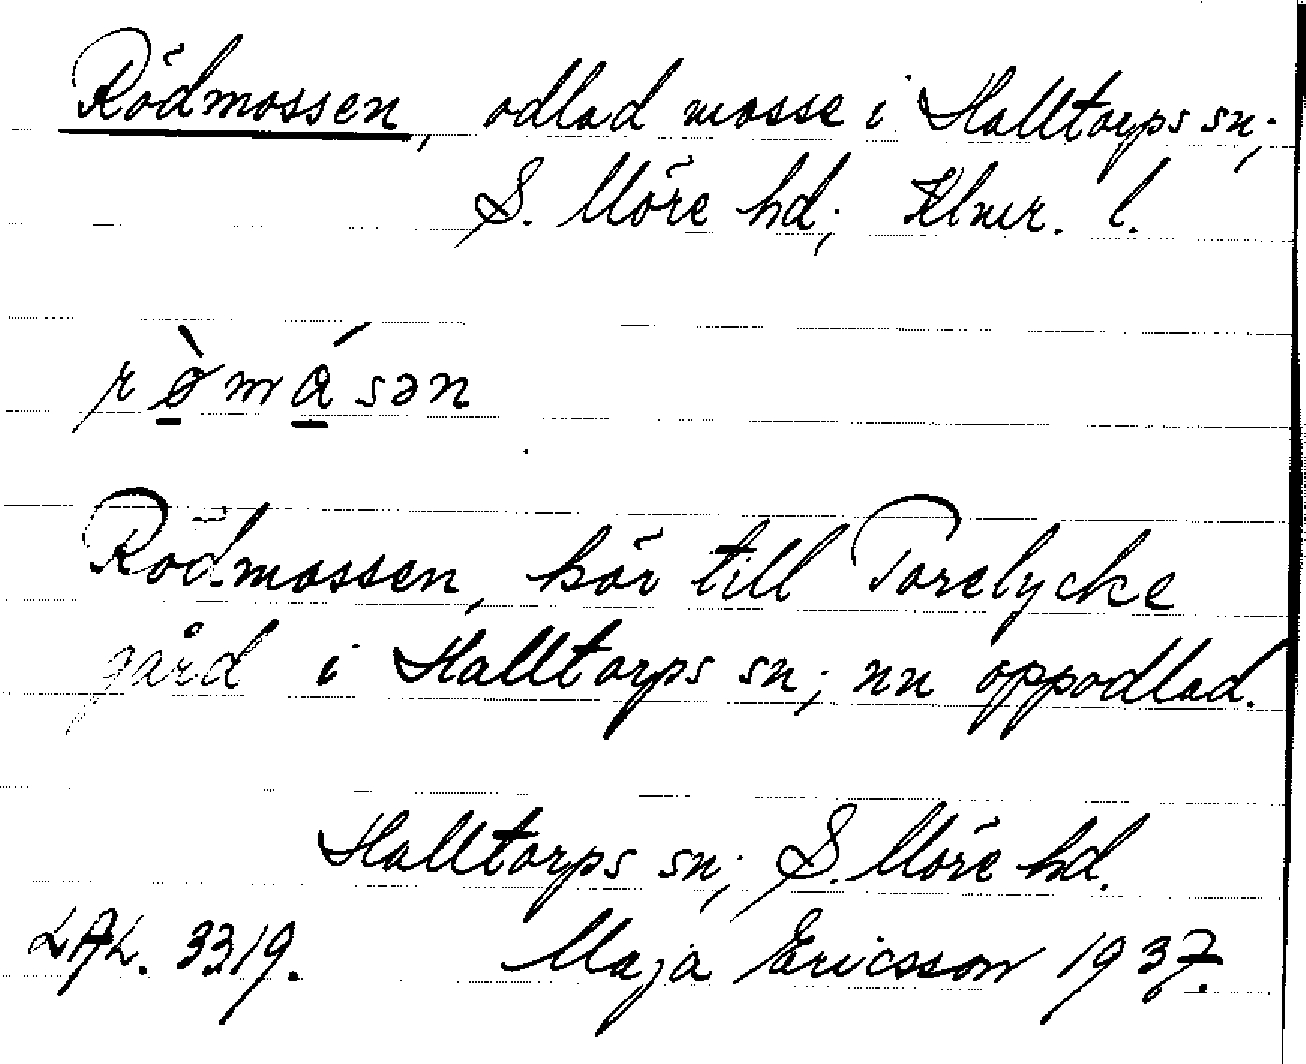 Rödmossen, odlad mosse i Halltorps sn;
S. Möre hd; Klmr. l.
rø̀másən
Rödmossen, hör till Torelycke
gård i Halltorps sn; nu oppodlad.
Halltorps sn; S. Möre hd.
LAL. 3319. Maja Ericsson 1937.